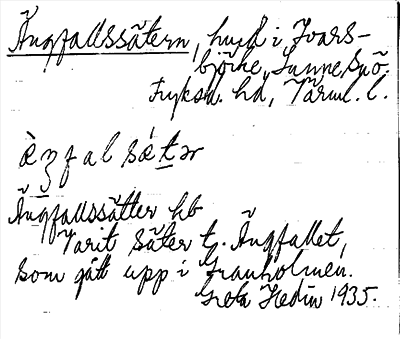 Ängfallssätern, husd i Ivars-
björke, Sunne Snö.
Fryksd. hd, Värml. l.
ängfallssätter hb
Varit säter t. Ängfallet,
som gått upp i Granholmen.
Greta Hedin 1935.